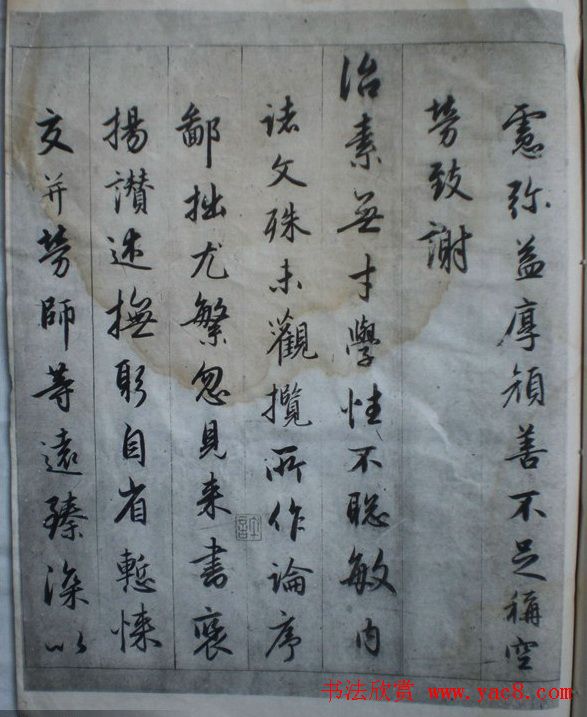 慮弥益厚顔善不足稱空
勞致謝
治素無才學性不聡敏内
諸文殊未觀攬所作論序
鄙拙尤繁忽見来書褒
揚讃述撫躬自省慙悚
交并勞師等遠臻深以
书法欣赏 www.yac8.com